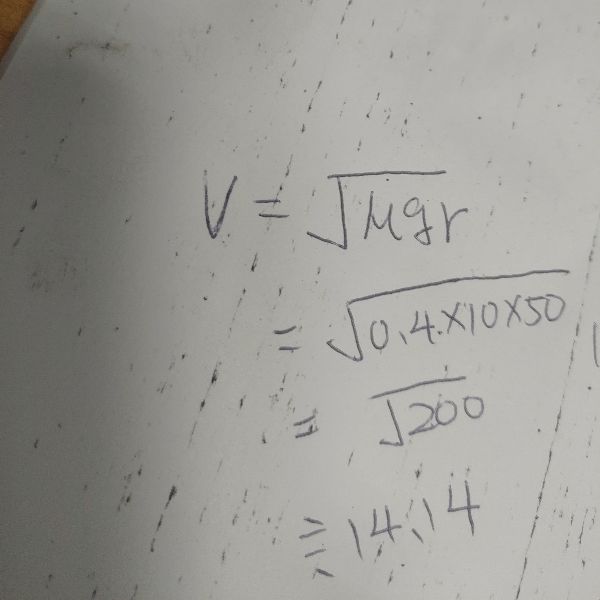 V = √μgr
= √0.4×10×50
= √200
≈ 14.14